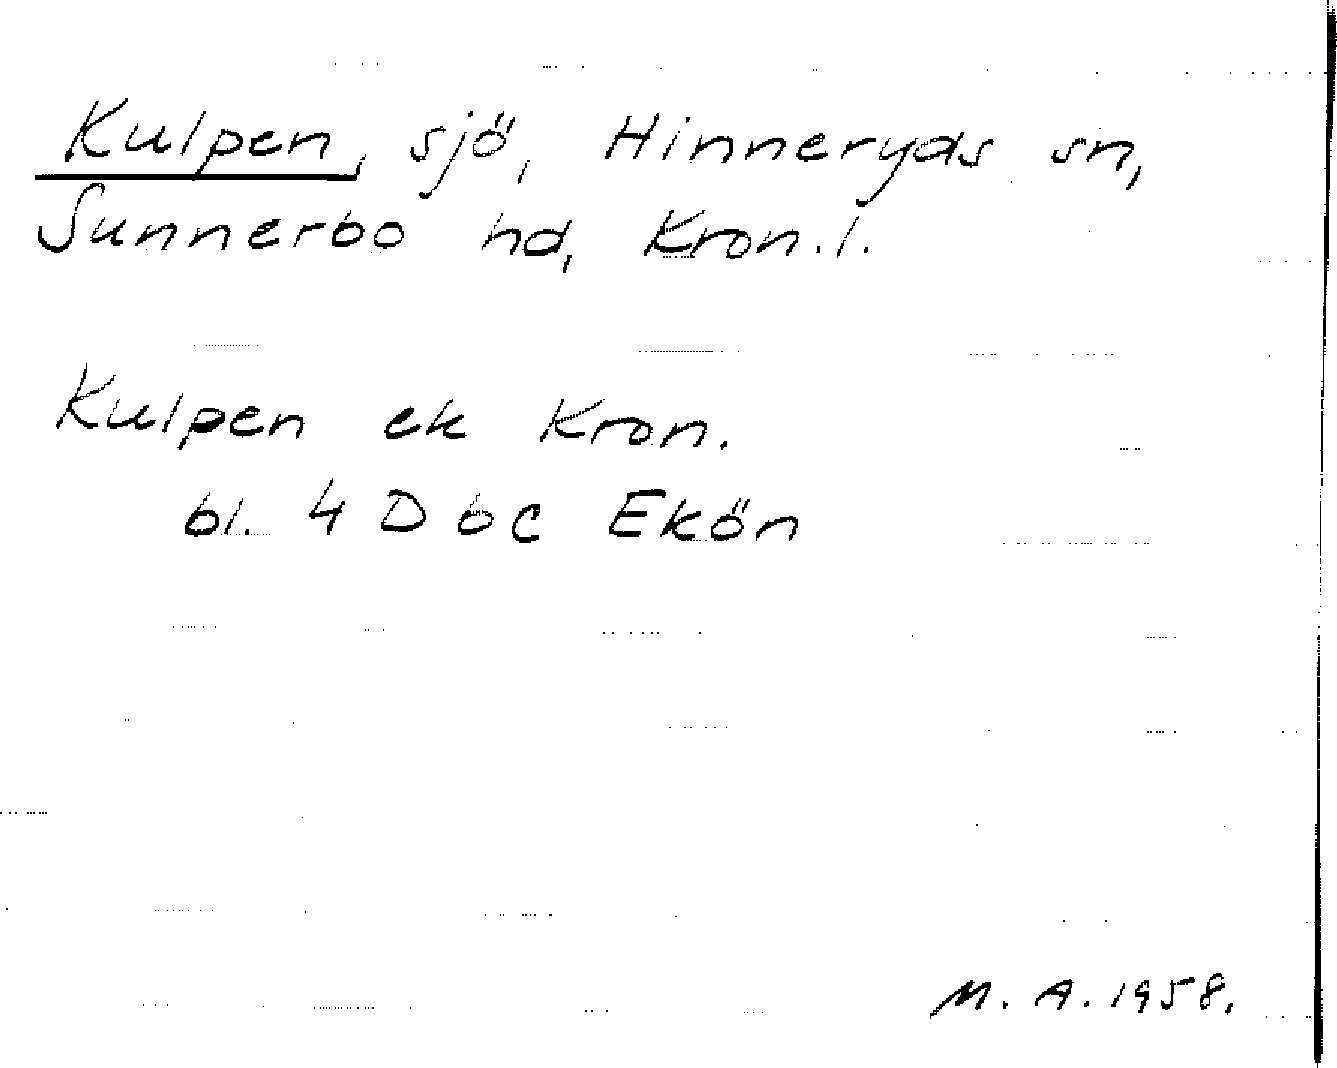 Kulpen, sjö, Hinneryds sn,
Sunnerbo hd, Kron.l.
Kulpen ek Kron.
bl. 4 D b c Ekön
M. A. 1958.